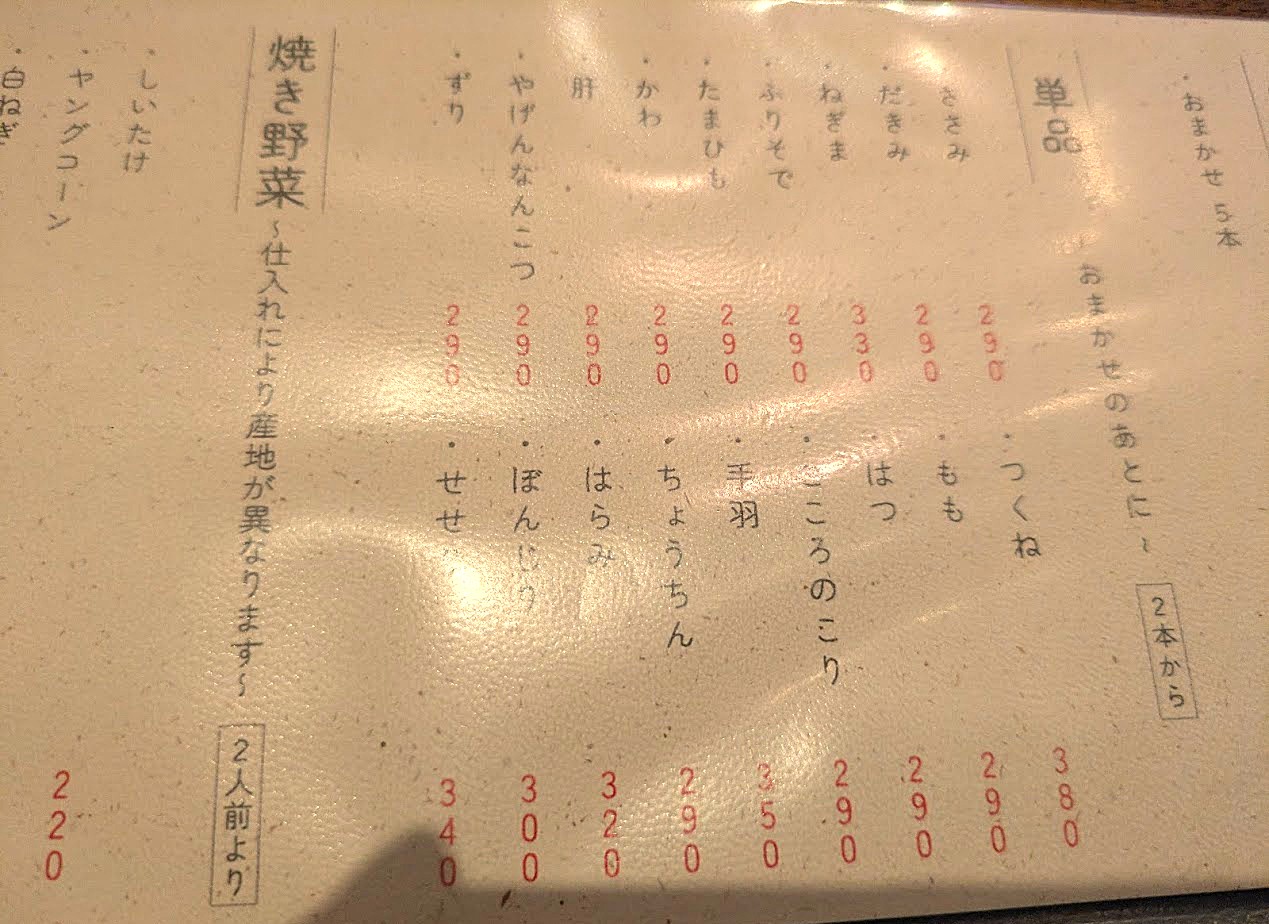 ・おまかせ 5本
単品
おまかせのあとに~
2本から
・ささみ
290
・だきみ
290
・ねぎま
330
・ふりそで
290
・たまひも
290
・かわ
290
・肝
290
・やげんなんこつ
290
・ずり
290
・つくね
380
・もも
290
・はつ
290
・こころのこり
290
・手羽
350
・ちょうちん
290
・はらみ
320
・ぼんじり
300
・せせ
340
焼き野菜
~仕入れにより産地が異なります~
2人前より
・しいたけ
・ヤングコーン
220
・白ねぎ